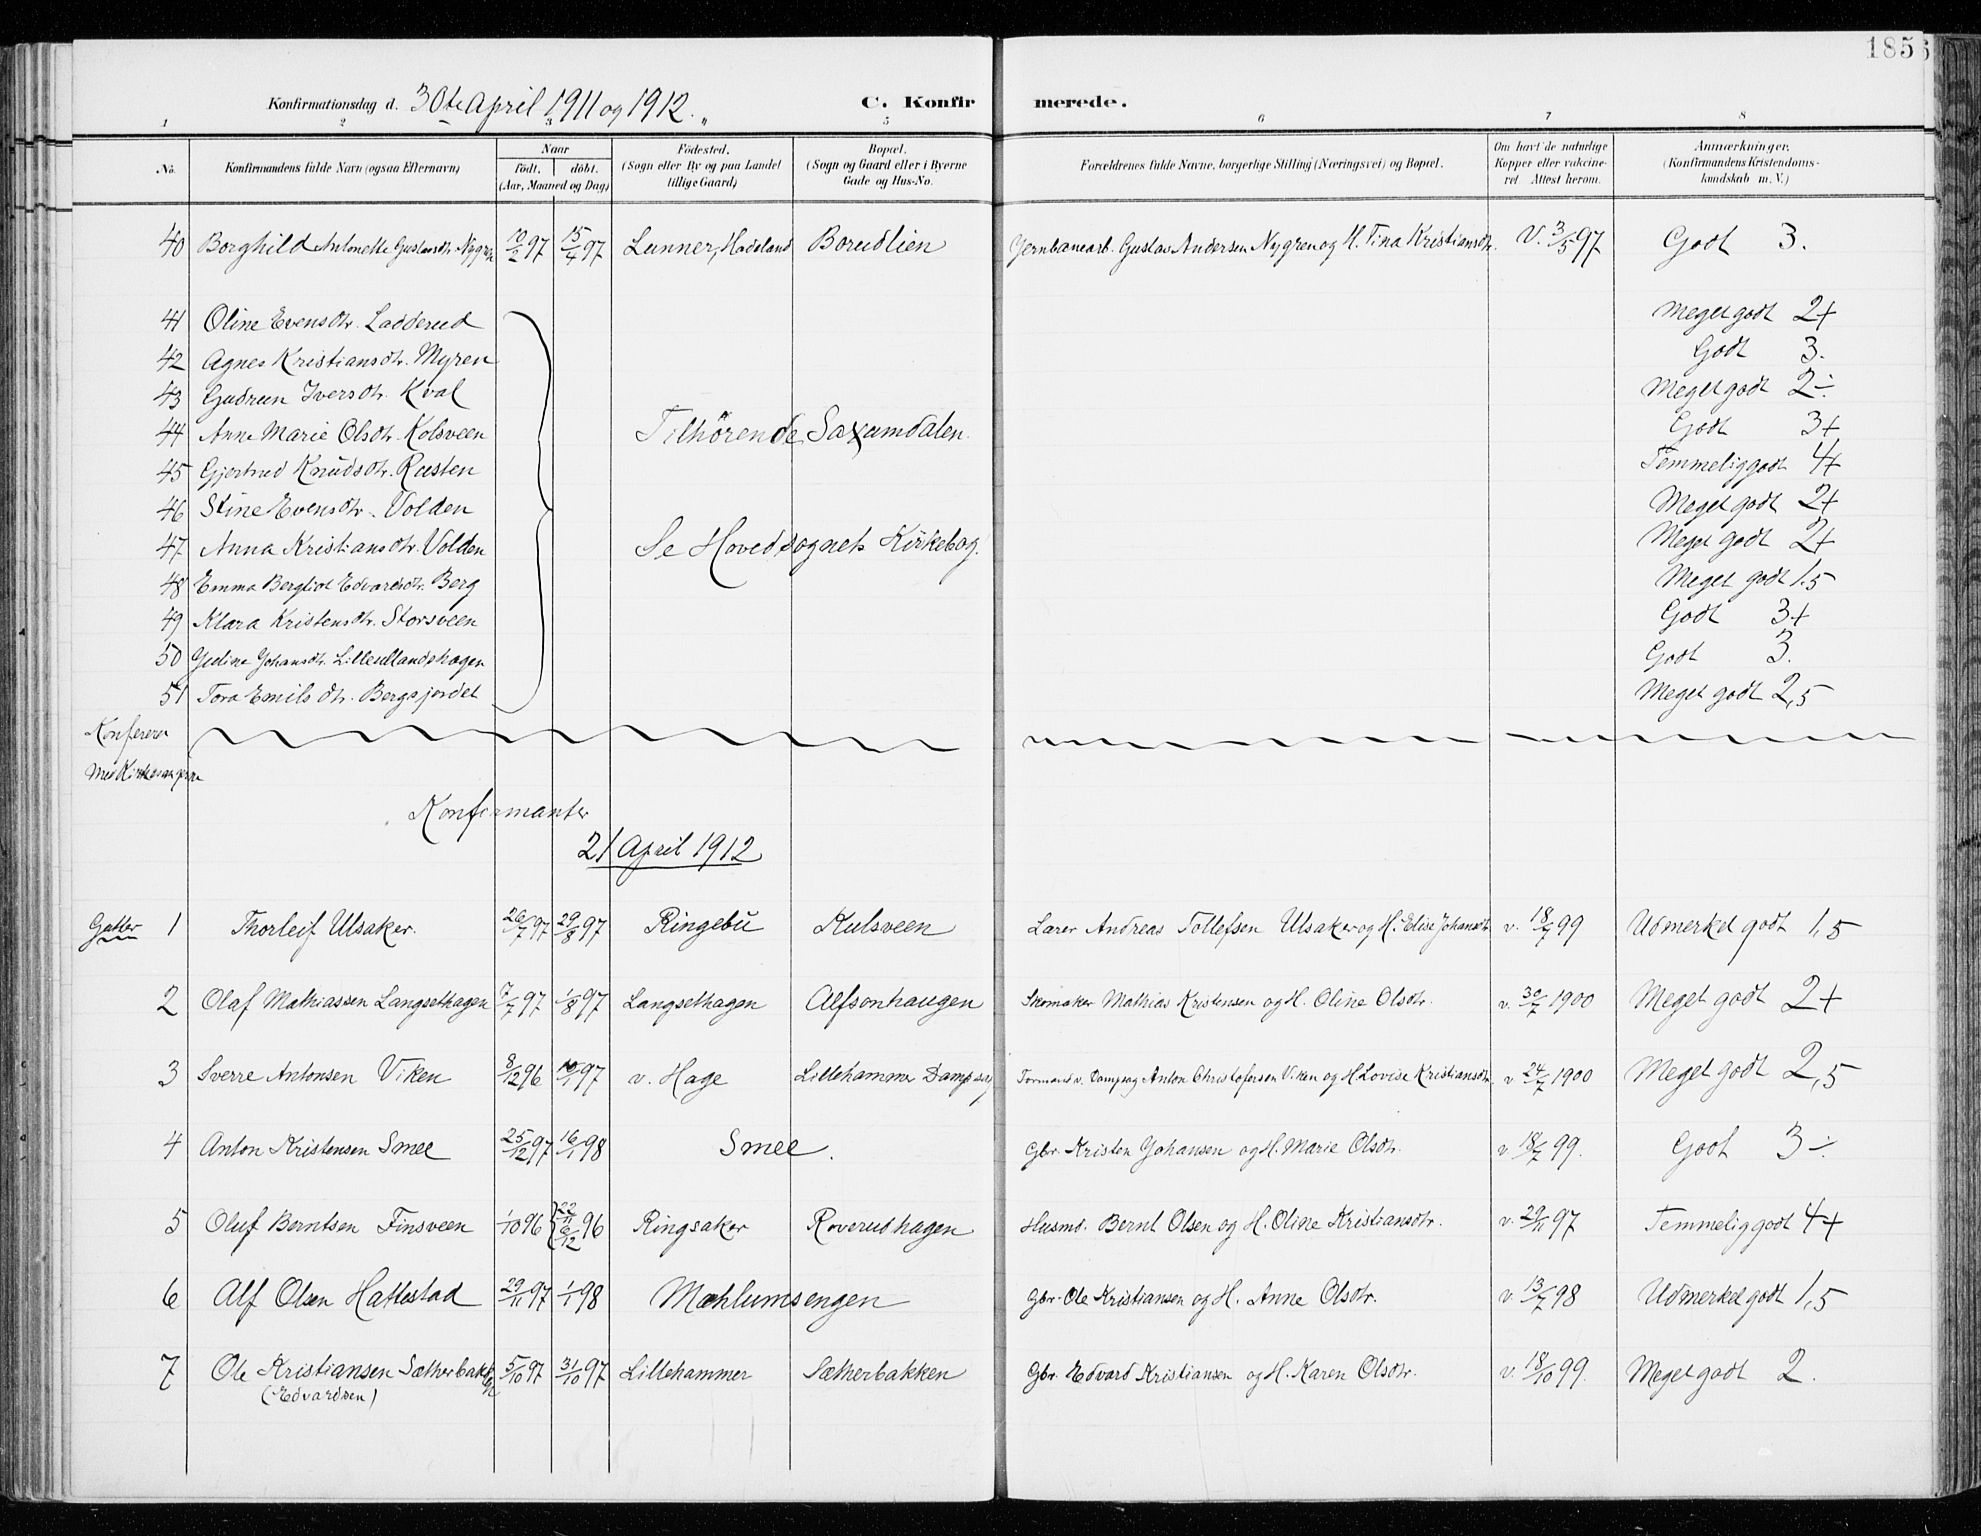 185
Konfirmationsdag d. 30te April 1911 og 1912.
C. Konfirmerede.
1 2 3 5 6 7 8
No.
Konfirmandens fulde Navn (ogsaa Efternavn)
Naar
født. døbt.
(Aar, Maaned og Dag)
Fødested.
(Sogn eller By og paa Landet
tillige Gaard)
Bopæl.
(Sogn og Gaard eller i Byerne
Gade og Hus-No.
Forældrenes fulde Navne, borgerlige Stilling (Næringsvei) og Bopæl.
Om havt de naturlige
Kopper eller vakcine-
ret. Attest herom.
Anmærkninger.
(Konfirmandens Kristendoms-
kundskab m. V.)
40 Borghild Antonette Gustavsdtr. Nygren 10/2 97 15/4 97 Lunner, Hadeland Borudlien Jernbanearb. Gustav Andersen Nygren og H. Tina Kristiansdtr. V. 3/5 97 Godt 3.
41 Oline Evensdtr. Ladderud Meget godt 2+
42 Agnes Kristiansdtr. Myren Godt 3.
43 Gudrun Iversdtr. Kval Meget godt 2÷
44 Anne Marie Olsdtr. Kolsveen Tilhörende Saxumdalen. Godt 3+
45 Gjertrud Knudsdtr. Rusten Temmelig godt 4+
46 Stine Evensdtr. Volden Meget godt 2+
47 Anna Kristiansdtr. Volden Se Hovedsognets Kirkebog. Meget godt 2+
48 Emma Bergliot Edvardsdtr. Berg Meget godt 1.5
49 Klara Kristensdtr. Storsveen Godt 3+
50 Johansdtr. Godt 3.
51 Tora Emilsdtr. Bergsjordet Meget godt 2,5
Konfereret
med
Konfirmanter
21 April 1912
Gutter 1 Thorleif Ulsaker. 26/7 97 29/8 97 Ringebu Kulsveen Lærer Andreas Tollefsen Ulsaker og H. Elise Johansdtr. v. 18/7 99 Udmerket godt 1,5
2 Olaf Mathiassen Langsethagen 7/7 97 1/8 97 Langsethagen Alfsonhaugen Skomaker Mathias Kristensen og H. Oline Olsdtr. v. 30/7 1900 Meget godt 2+
3 Sverre Antonsen Viken 8/12 96 10/1 97 v. Hage Lillehammer Dampsag Formand v. Dampsag Anton Christofersen Viken og H. Lovise Kristiansdtr. v. 24/7 1900 Meget godt 2,5
4 Anton Kristensen Smee 25/12 97 16/1 98 Smee. Gbr. Kristen Johansen og H. Marie Olsdtr. v. 18/7 99. Godt 3÷
5 Oluf Berntsen Finsveen 1/10 96 22/11 6/12 96 Ringsaker Roverudhagen Husmd. Bernt Olsen og H. Oline Kristiansdtr. v. 29/11 97 Temmelig godt 4+
6 Alf Olsen Hattestad 29/11 97 1/1 98 Mæhlumsengen Gbr. Ole Kristiansen og H. Anne Olsdtr. v. 13/7 98 Udmerket godt 1,5
7 Ole Kristiansen Sætherbakken 5/10 97 31/10 97 Lillehammer Sætherbakken Gbr. Edvard Kristiansen og H. Karen Olsdtr. v. 18/10 99. Meget godt 2.
(Edvardsen)